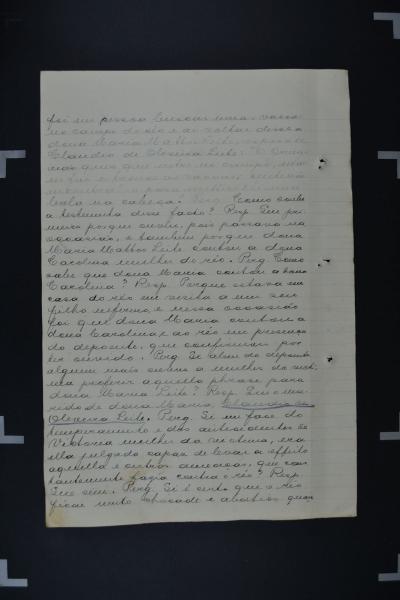 foi em pessoa buscar uma vacca
no campo do réo e ao voltar dissera
dona Maria Mattos Leite, esposa de
Claudio de Oliveira Leite:
bala na cabeça. Perg. Como soube
a testemunha disse facto? Resp. Em pri-
meiro porque ouviu, pois passava na
occasião, e tambem porque dona
Maria Mattos Leite contou a dona
Carolina mulher do réo. Perg. Como
sabe que dona Maria contou a dona
Carolina? Resp. Porque estava em
casa do réo em visita a um seu
filho enfermo, e nessa occasião
foi que dona Maria contou a
dona Carolina e ao réo em presença
do depoente, que confirmou por
ter ouvido. Perg. Se alem do depoente
alguem mais ouviu a mulher da victi-
ma proferir aquella phrase para
dona Maria Leite? Resp. Que o ma-
rido de dona Maria, Claudio de
Oliveira Leite. Perg. Se em face do
temperamento e dos antecedentes de
Victoria mulher da victima, era
ella julgada capaz de levar a effeito
aquella e outras ameaças, que cons-
tantemente fazia contra o réo? Resp.
Que sim. Perg. Se é certo que o réo
ficou muito chocado e aborrecido quan-